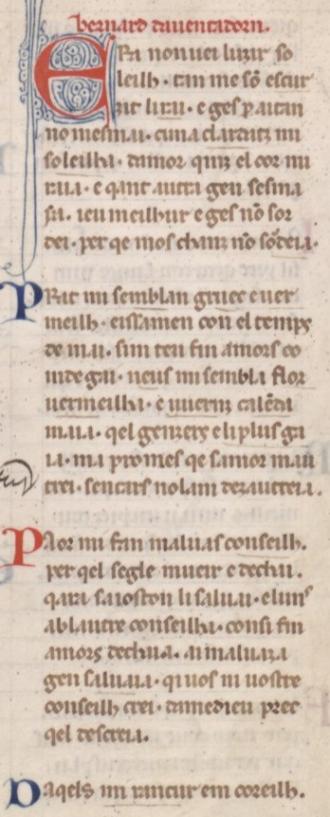 bernard dauentadorn.
Era non uei luzir so
leilh . tan me sō escur
zit li rai . e ges p aitan
no mesmai . cuna clardatz mi
soleilha . damor qinz el cor mi
raia . e qant autra gen sesma
ia . ieu meilhur e ges nō sor
dei . per qe mos chanz nō sordeia.
Prat mi semblan gruec e uer
meilh . eissamen con el temps
de mai . sim ten fin amors co
inde gai . neus mi sembla flor
uermeilha . e iuerns calēda
maia . qel genzers e li plus ga
ia . ma promes qe samor mau
trei . sencars nolam dezautreia.
Paor mi fan maluas conseilh.
per qel segle mueir e dechai.
qara saioston li saluai . e luns
ab lautre conseilha . consi fin
amors dechaia . ai maluaza
gen saluaia . qi uos ni uostre
conseilh crei . damedieu prec
qel descreia.
Daqels mi rancur em coreilh.